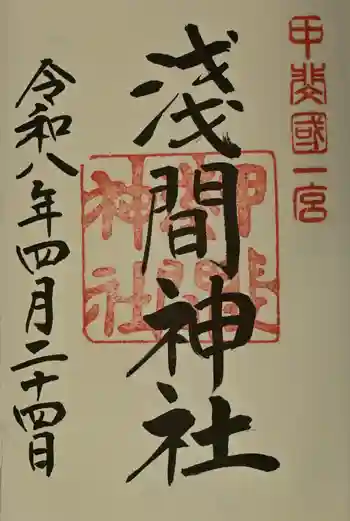 甲斐國一宮
淺間神社
甲斐
淺間
神社
令和八年四月二十四日